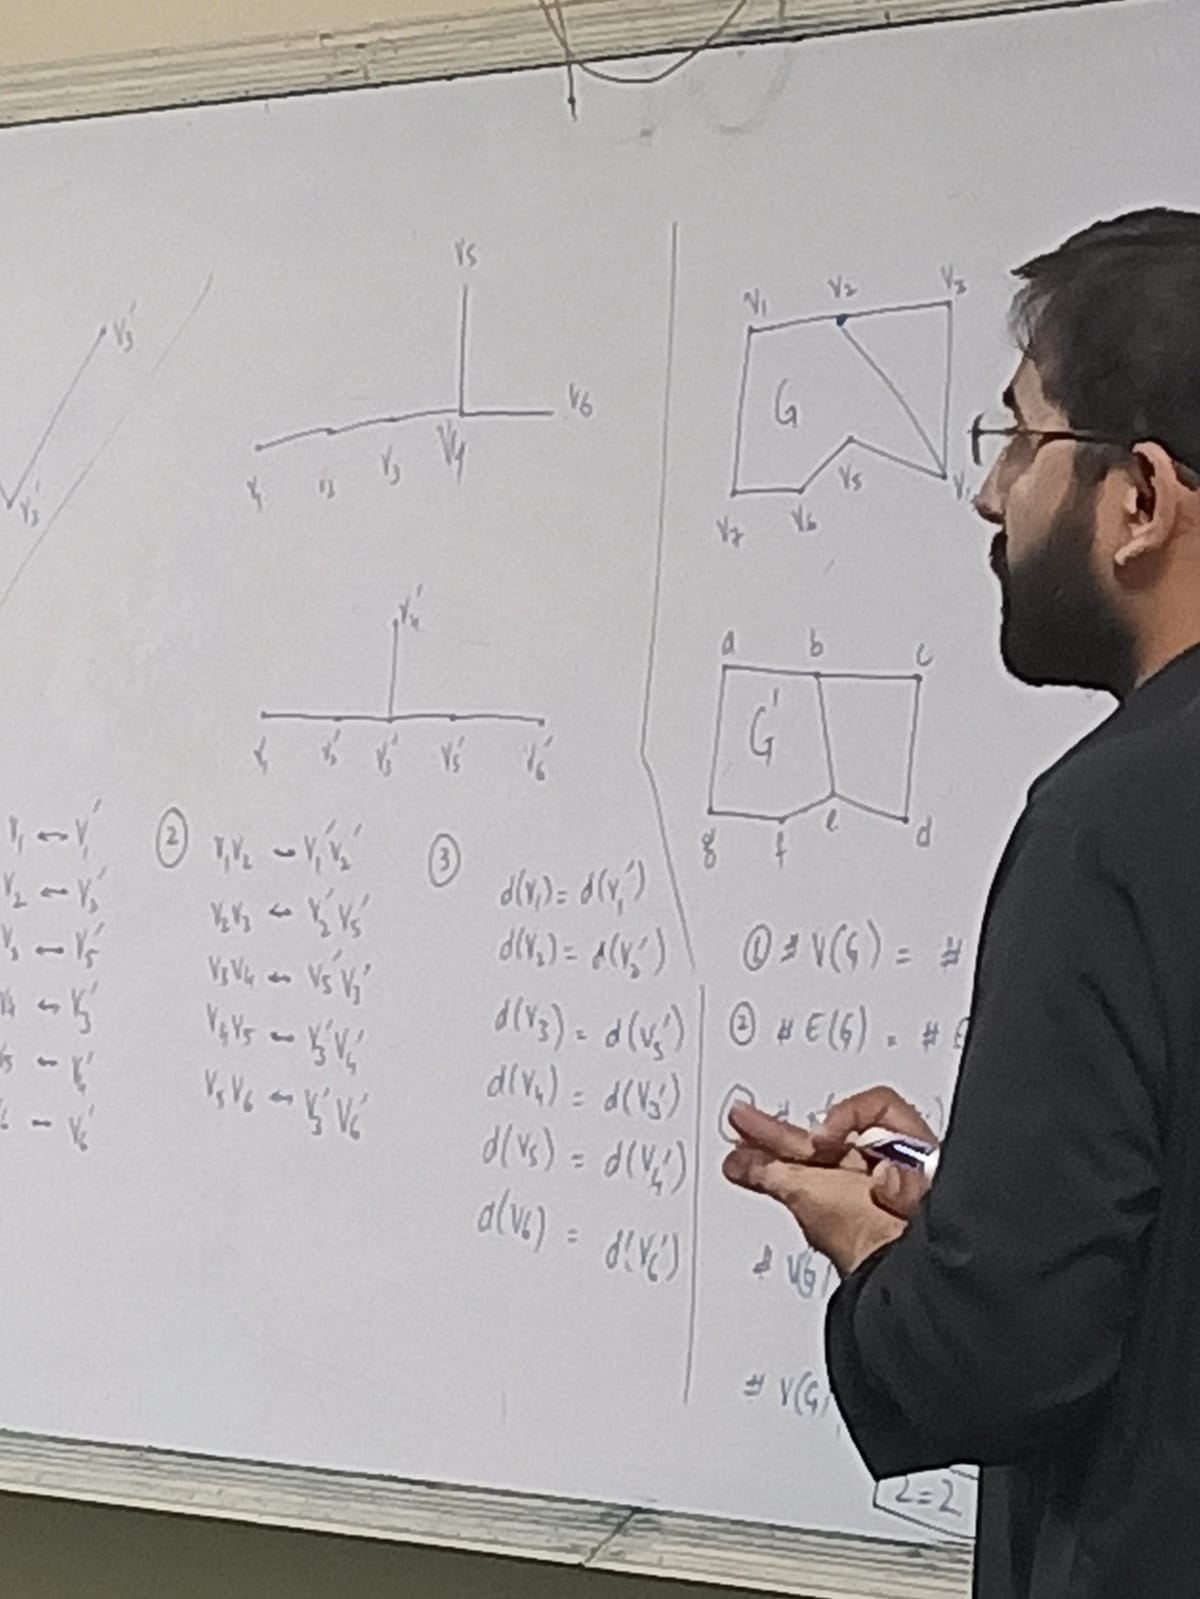 V3'
V3'
V5
V6
V1 V2 V3 V4
V4'
V1 V2' V3' V5' V6'
V1 ↔ V1'
V2 ↔ V2'
V3 ↔ V5'
V4 ↔ V3'
V5 ↔ V4'
V6 ↔ V6'
②
V1V2 ↔ V1'V2'
V2V3 ↔ V2'V5'
V3V4 ↔ V5'V3'
V4V5 ↔ V3'V4'
V5V6 ↔ V3'V6'
③
d(V1) = d(V1')
d(V2) = d(V2')
d(V3) = d(V5')
d(V4) = d(V3')
d(V5) = d(V4')
d(V6) = d(V6')
V1 V2 V3
G
V5
V7 V6
a b c
G'
g f e d
① # V(G) = #
② # E(G) = #
# V(G)
# V(G)
2=2